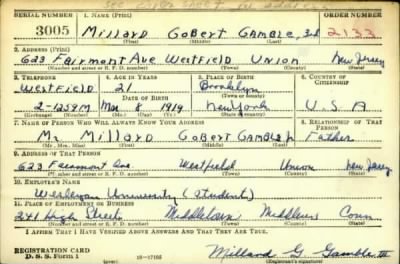 See cover sheet for address
SERIAL NUMBER 1. NAME (Print) ORDER NUMBER
3005 Millard Gobert Gamble, 3rd 2133
(First) (Middle) (Last)
2. ADDRESS (Print)
623 Fairmont Ave Westfield Union New Jersey
(Number and street or R. F. D. number) (Town) (County) (State)
3. TELEPHONE 4. AGE IN YEARS 5. PLACE OF BIRTH 6. COUNTRY OF CITIZENSHIP
Westfield 21 Brooklyn
DATE OF BIRTH (Town or county)
2-1259M Mar 6 1919 New York U.S.A
(Exchange) (Number) (Mo.) (Day) (Yr.) (State or country)
7. NAME OF PERSON WHO WILL ALWAYS KNOW YOUR ADDRESS 8. RELATIONSHIP OF THAT PERSON
Mr Millard Gobert Gamble Jr Father
(Mr., Mrs., Miss) (First) (Middle) (Last)
9. ADDRESS OF THAT PERSON
623 Fairmont Ave. Westfield Union New Jersey
(Number and street or R. F. D. number) (Town) (County) (State)
10. EMPLOYER'S NAME
Wesleyan University (Student)
11. PLACE OF EMPLOYMENT OR BUSINESS
241 High Street Middletown Middlesex Conn
(Number and street or R. F. D. number) (Town) (County) (State)
I AFFIRM THAT I HAVE VERIFIED ABOVE ANSWERS AND THAT THEY ARE TRUE.
REGISTRATION CARD
D. S. S. Form 1 (over) 16-17105 Millard G. Gamble III
(Registrant's signature)